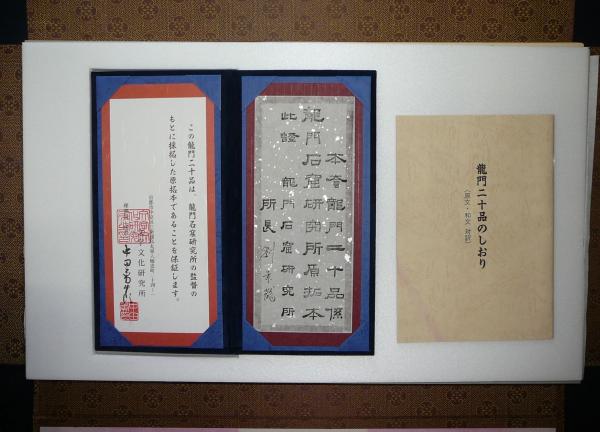 この龍門二十品は、龍門石窟研究所の監督の
もとに採拓した原拓本であることを保証します。
文化研究所
本套龍門二十品係
龍門石窟研究所原拓本
此證 龍門石窟研究所
所長
龍門二十品のしおり
(原文・和文 対訳)